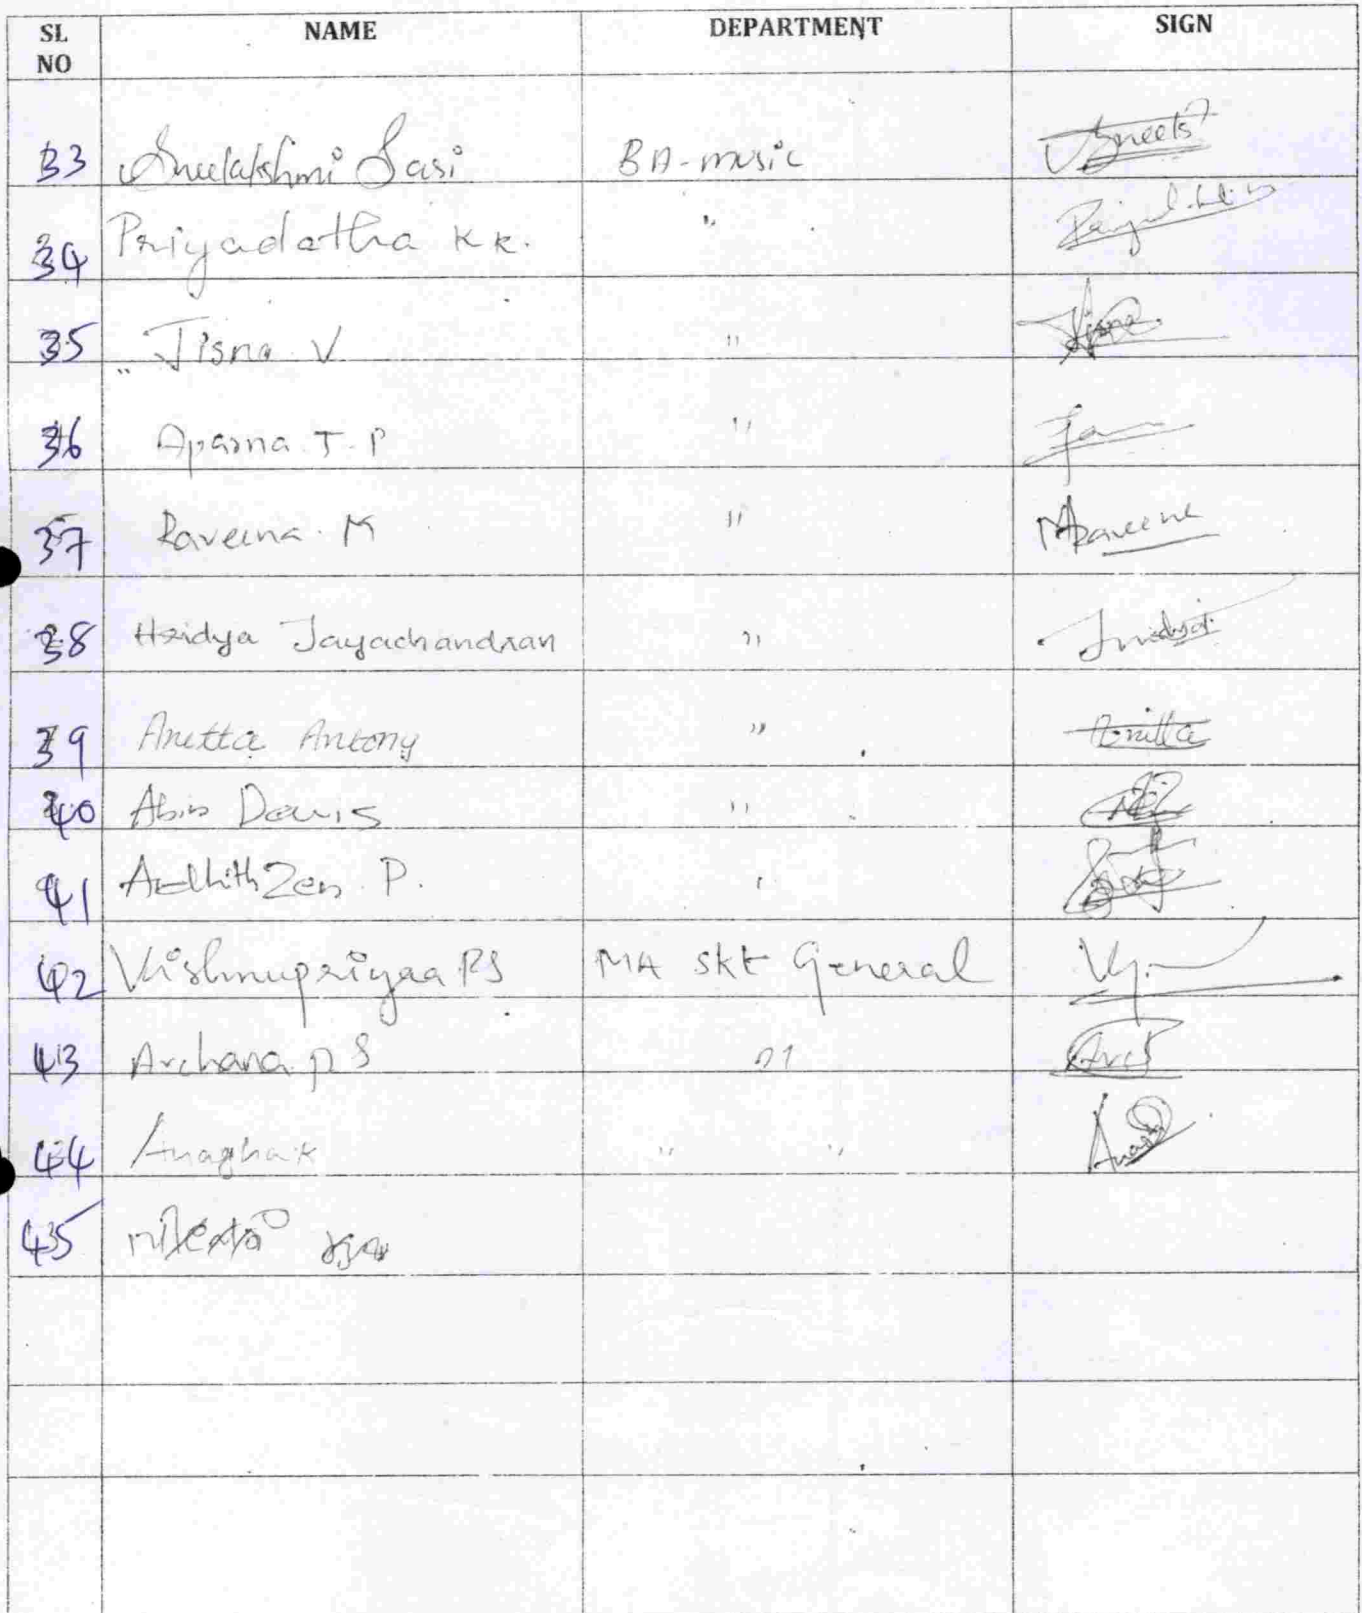 SL NO NAME DEPARTMENT SIGN
33 Sreelakshmi Sasi BA-music Sreels
34 Priyadatha K K. "
35 Jisna V " Jisna
36 Aparna T. P "
37 Raveena. M " Raveena
38 Hridya Jayachandran "
39 Anitta Antony " Anitta
40 Abin Davis "
41 Adhith Zen P. "
42 Vishnupriyaa P S MA Skt General
43 Archana P S "
44 Anagha K " "
45